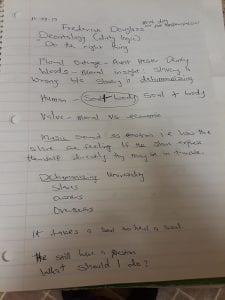 11-29-17
Frederick Douglass
Deontology (duty logic)
Do the right thing
Moral Outrage - Aunt Hester
Words - Moral insight - slavery is
wrong b/c slavery is dehumanizing
Human - Soul + body Soul + body
Value - moral vs economic
Music sound as emotion i.e how the
slave are feeling if the slave express
themself directly they may be in trouble.
Dehumanizing University
Slaves
Overseers
It takes a soul to heal a soul.
He still have a
What should I do?